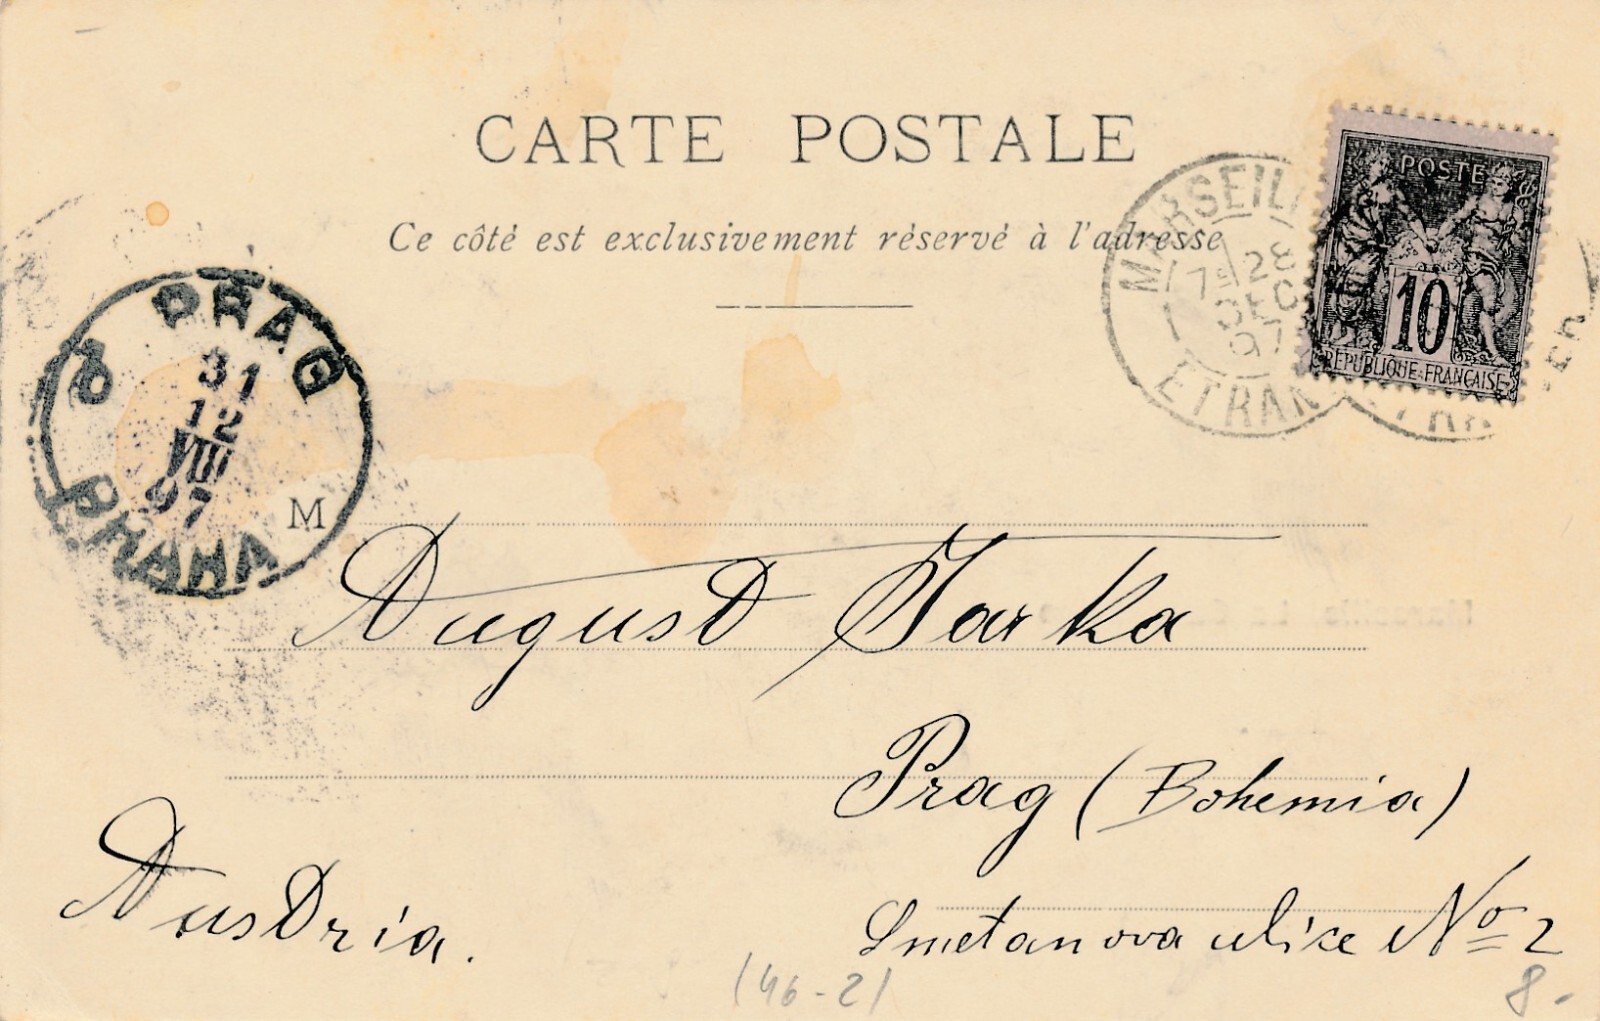 CARTE POSTALE
Ce côté est exclusivement réservé à l'adresse
POSTE
10
REPUBLIQUE FRANÇAISE
MARSEILL
7 28
DEC
97
ETRAN
PRAG
31
12
VIII
97
PRAHA
M
August Jarka
Prag (Bohemia)
Austria.
Smetanova ulice No 2
(46-2)
8.-